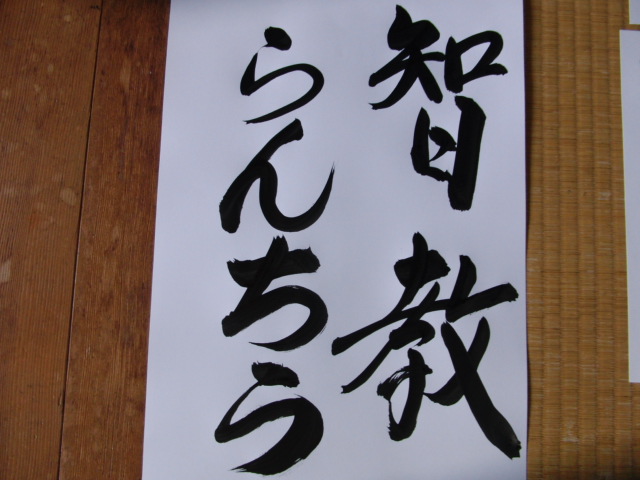 智教
らんちう